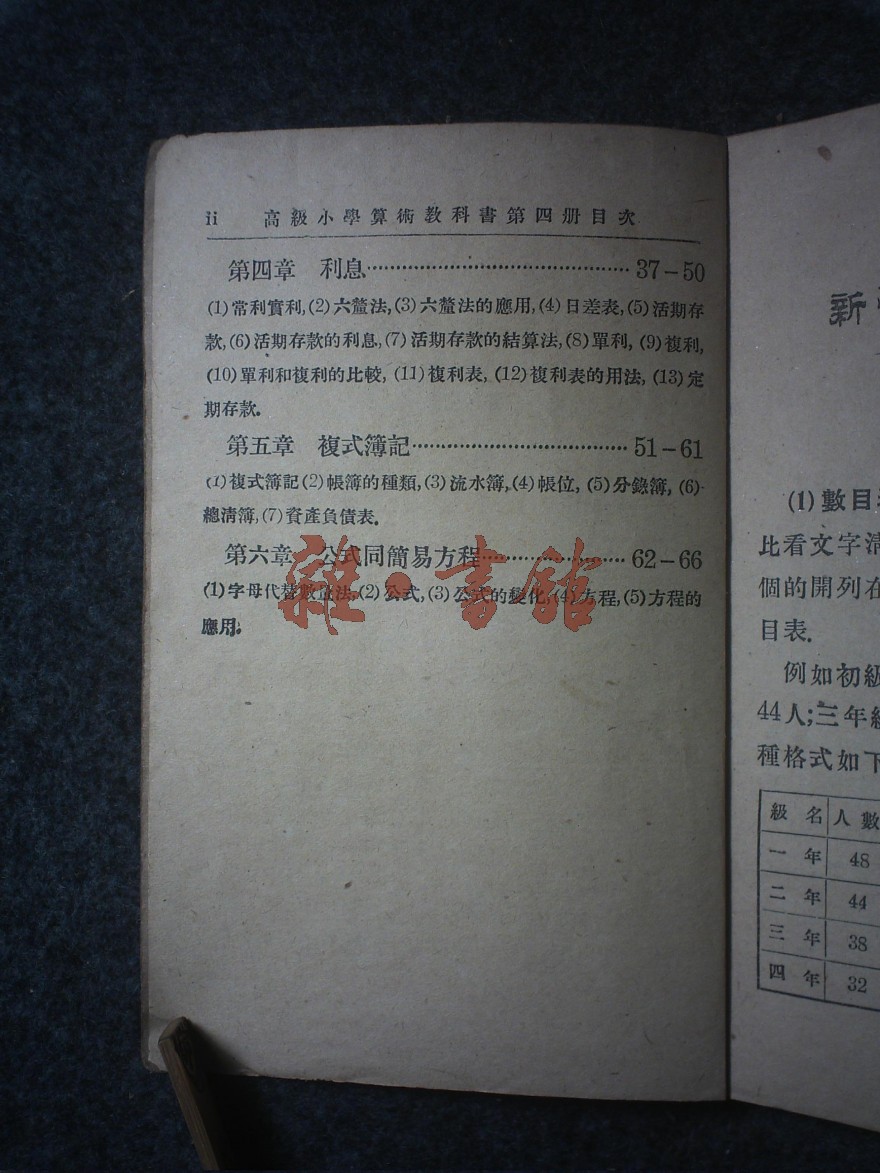 ii 高級小學算術教科書第四册目次
第四章 利息……………………………………37-50
(1)常利實利,(2)六釐法,(3)六釐法的應用,(4)日差表,(5)活期存
款,(6)活期存款的利息,(7)活期存款的結算法,(8)單利,(9)複利,
(10)單利和複利的比較,(11)複利表,(12)複利表的用法,(13)定
期存款.
第五章 複式簿記………………………………51-61
(1)複式簿記(2)帳簿的種類,(3)流水簿,(4)帳位,(5)分錄簿,(6)
總清簿,(7)資產負債表.
第六章 公式同簡易方程……………………62-66
(1)字母代替數值法,(2)公式,(3)公式的變化,(4)方程,(5)方程的
應用.
雜·書館
新
(1)數目
比看文字清
個的開列在
目表.
例如初級
44人;三年級
種格式如下
級名 人數
一年 48
二年 44
三年 38
四年 32